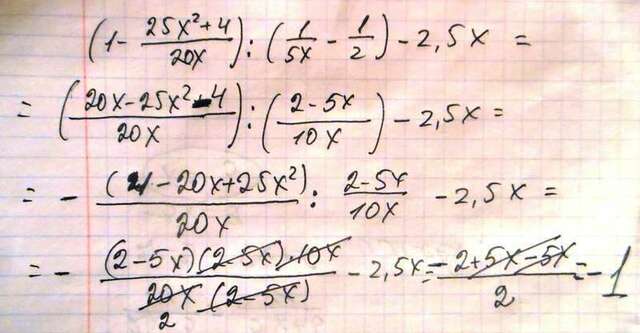 (1 - (25x²+4)/(20x)) : (1/(5x) - 1/2) - 2,5x =
= ((20x-25x²-4)/(20x)) : ((2-5x)/(10x)) - 2,5x =
= - (4-20x+25x²)/(20x) : (2-5x)/(10x) - 2,5x =
= - ((2-5x)(2-5x)·10x)/(20x·(2-5x)) - 2,5x = (-2+5x-5x)/2 = -1
2